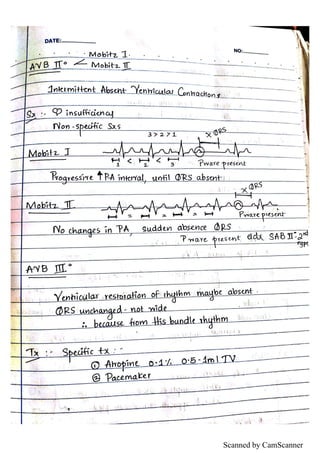 DATE:
NO:
Mobitz I
AVB II° < Mobitz II
Intermittent Absent Ventricular Contractions
Sx :- insufficiency
Non-specific Sxs
3 > 2 > 1
X QRS
Mobitz I
< <
1 2 3 P wave present
Progressive ↑ PQ interval, until QRS absent.
X QRS
Mobitz II
= = = = P wave present
No changes in PQ, sudden absence QRS
P wave present SAB II° 2nd type
AVB III°
Ventricular restoration of rhythm maybe absent
QRS unchanged - not wide
∴ because from His bundle rhythm
Tx :- Specific tx :-
① Atropine 0.1% 0.5-1ml IV
② Pacemaker
Scanned by CamScanner